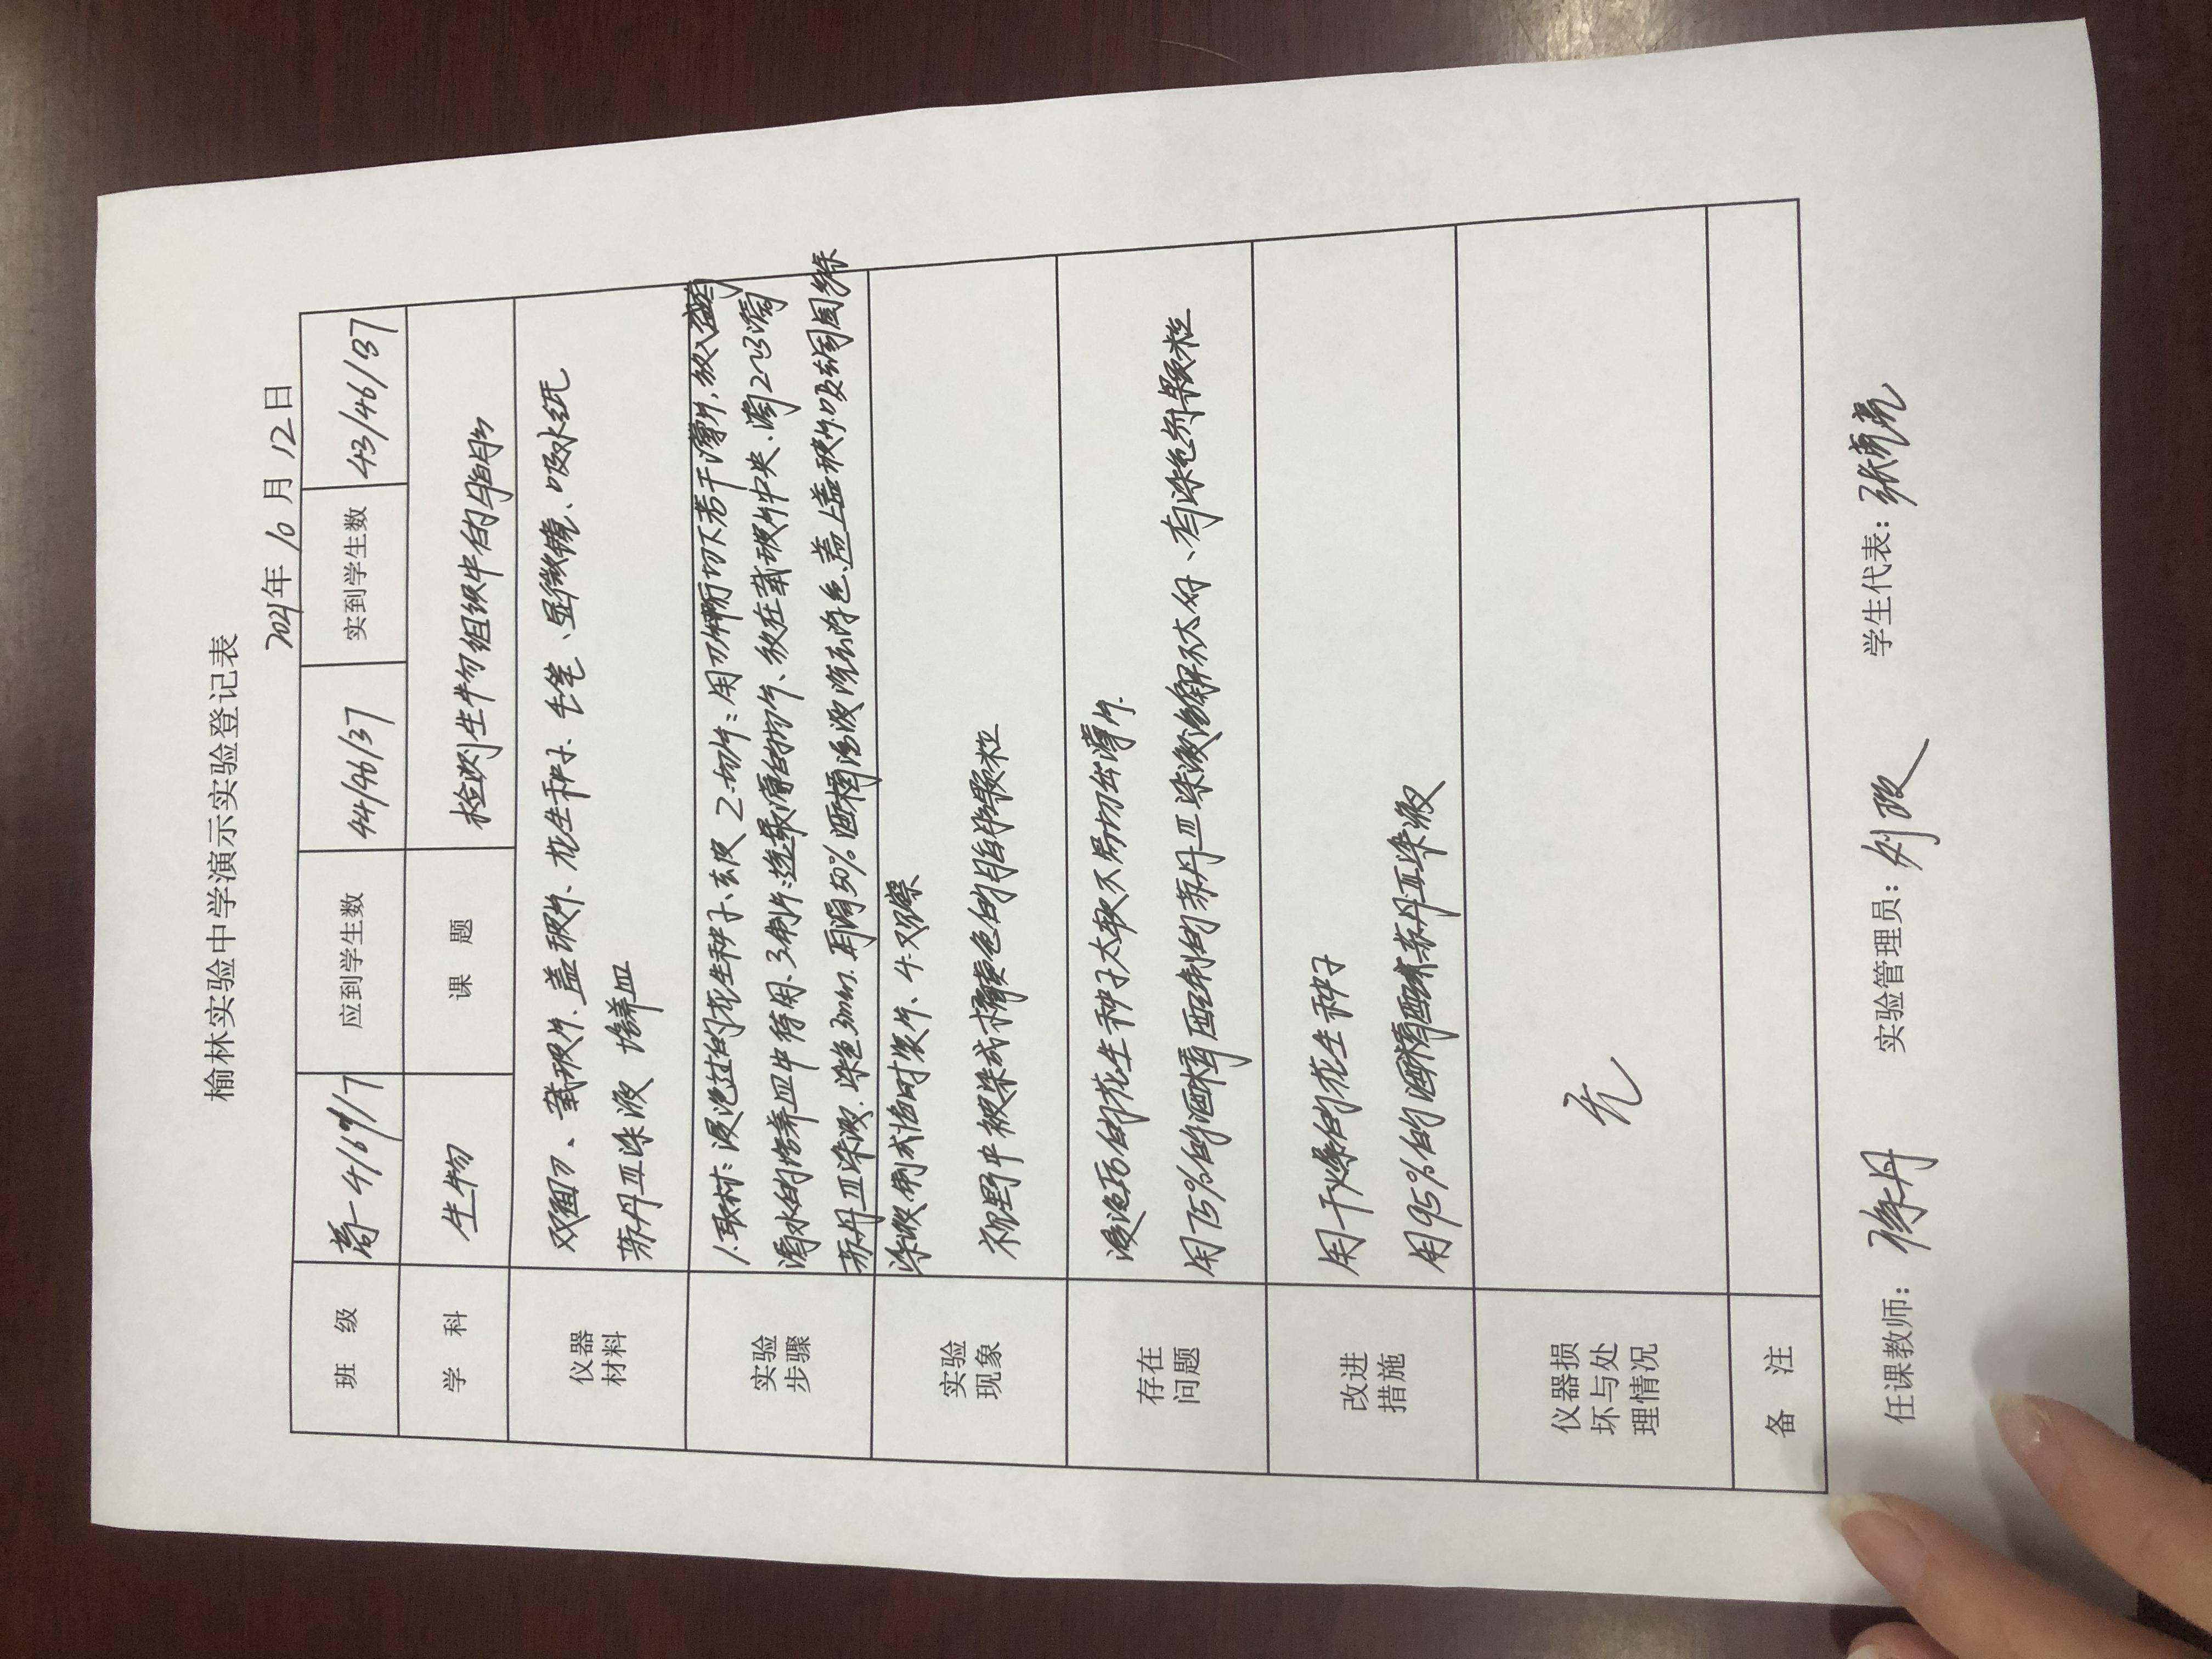 榆林实验中学演示实验登记表
2021年 10 月 12 日
班 级 高一4/6/7 应到学生数 44/46/37 实到学生数 43/46/37
学 科 生物 课 题 检测生物组织中的脂肪
仪器材料 双面刀、载玻片、盖玻片、花生种子、毛笔、显微镜、吸水纸
苏丹Ⅲ染液 培养皿
实验步骤 1.取材:浸泡过的花生种子、去皮 2.切片:用刀片切下若干薄片,放入盛有
清水的培养皿中待用.3.制片:选最薄的切片、放在载玻片中央、滴2~3滴
苏丹Ⅲ染液.染色3min.再滴50%酒精溶液洗去浮色、盖上盖玻片.吸去周围
染液制成临时装片、4.观察
实验现象 视野中被染成橘黄色的脂肪颗粒
存在问题 浸泡的花生种子太软不易切出薄片.
用75%的酒精配制的苏丹Ⅲ染液溶解不太好、有染色剂颗粒
改进措施 用干燥的花生种子
用95%的酒精配苏丹Ⅲ染液
仪器损坏与处理情况 无
备 注
任课教师: 徐丹 实验管理员: 学生代表: